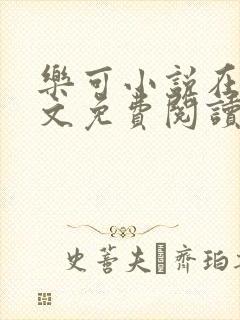 樂可小說在
文免費閱讀
史蒼夫 齊珀